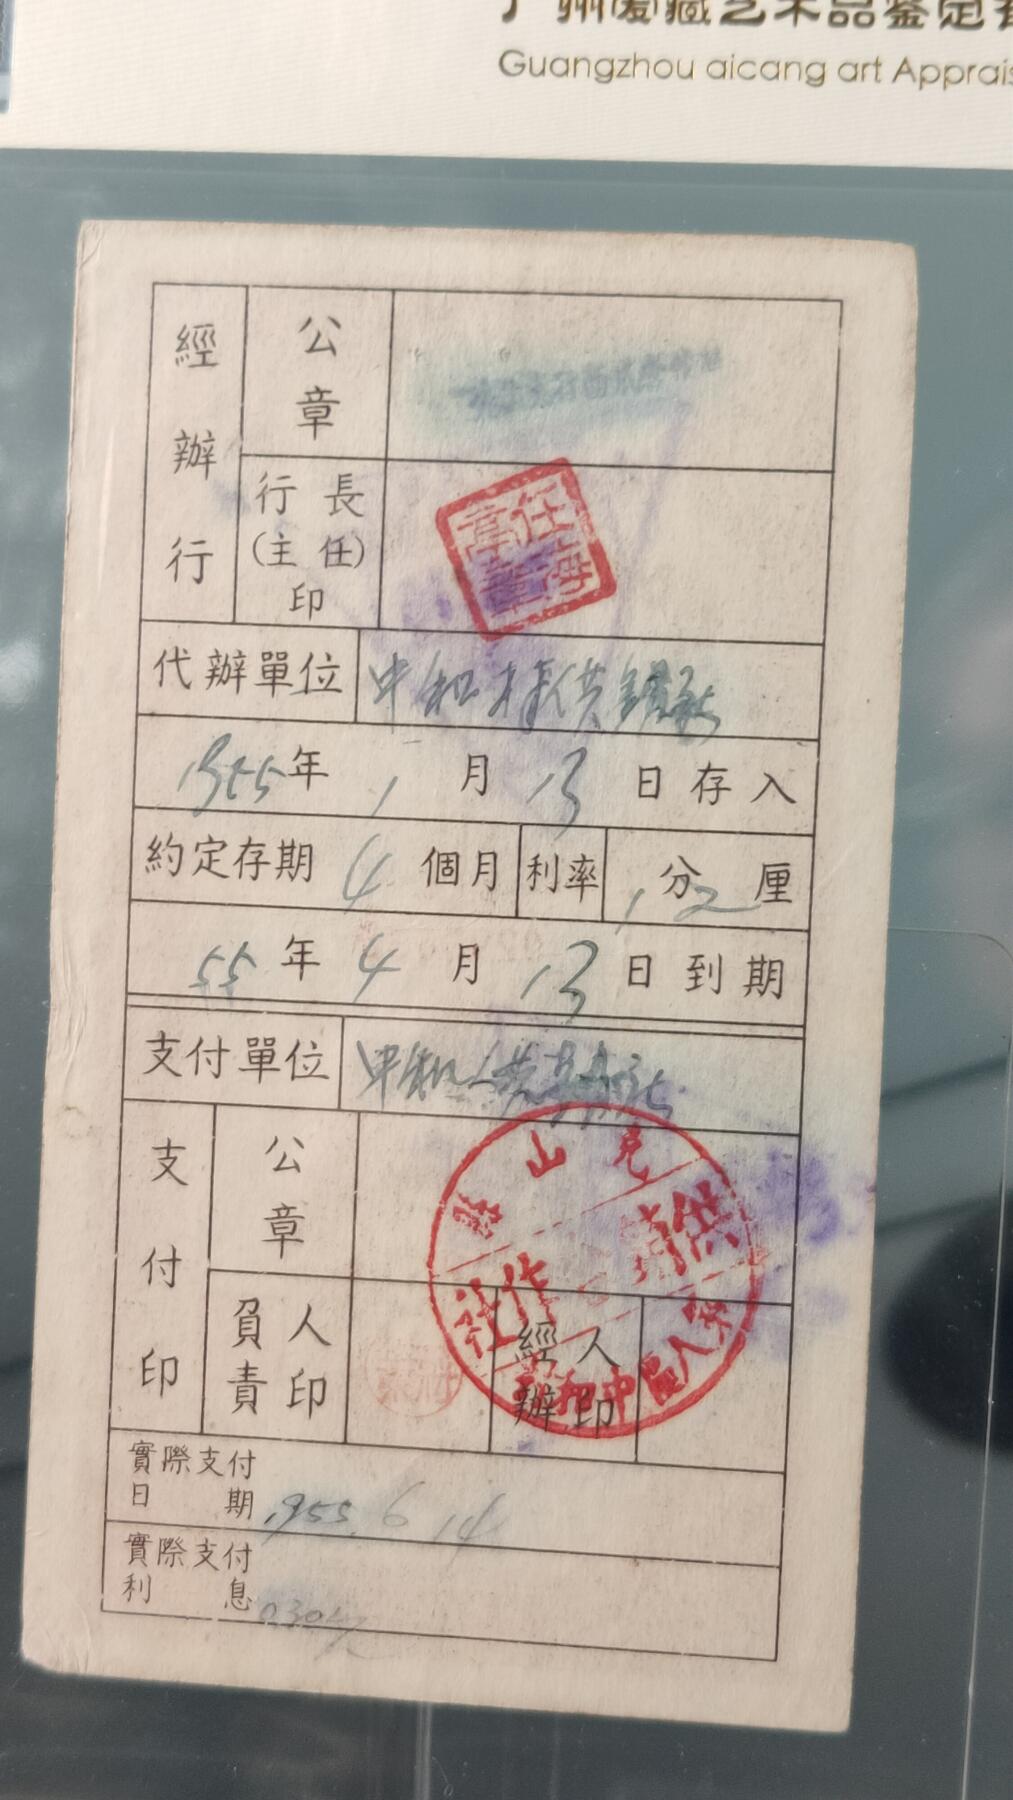 广州爱藏艺术品鉴定有
Guangzhou aicang art Apprais
經辦行
公章
行長
(主任)
印
任海
章
代辦單位 中和村供銷社
1955年1月13日存入
約定存期 4 個月 利率 1分2厘
55年4月13日到期
支付單位 中和
支付印
公章
克山縣
供銷
作社
第八區中和
負責人印
經辦人印
實際支付日期 1955.6.14
實際支付利息